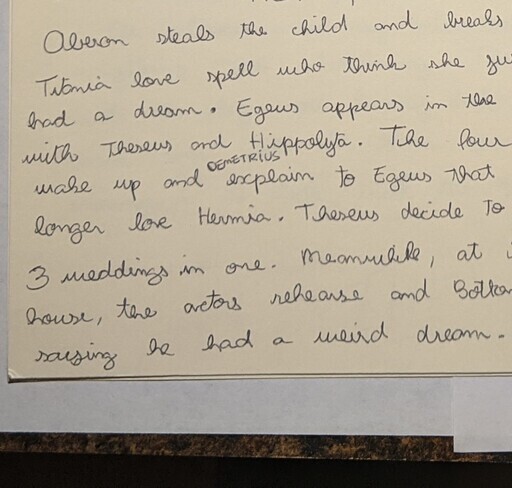 Oberon steals the child and breaks
Titania love spell who think she
had a dream. Egeus appears in the
with Theseus and Hippolyta. The four
DEMETRIUS
wake up and explain to Egeus that
longer love Hermia. Theseus decide to
3 weddings in one. Meanwhile, at
house, the actors rehearse and
saying he had a weird dream.